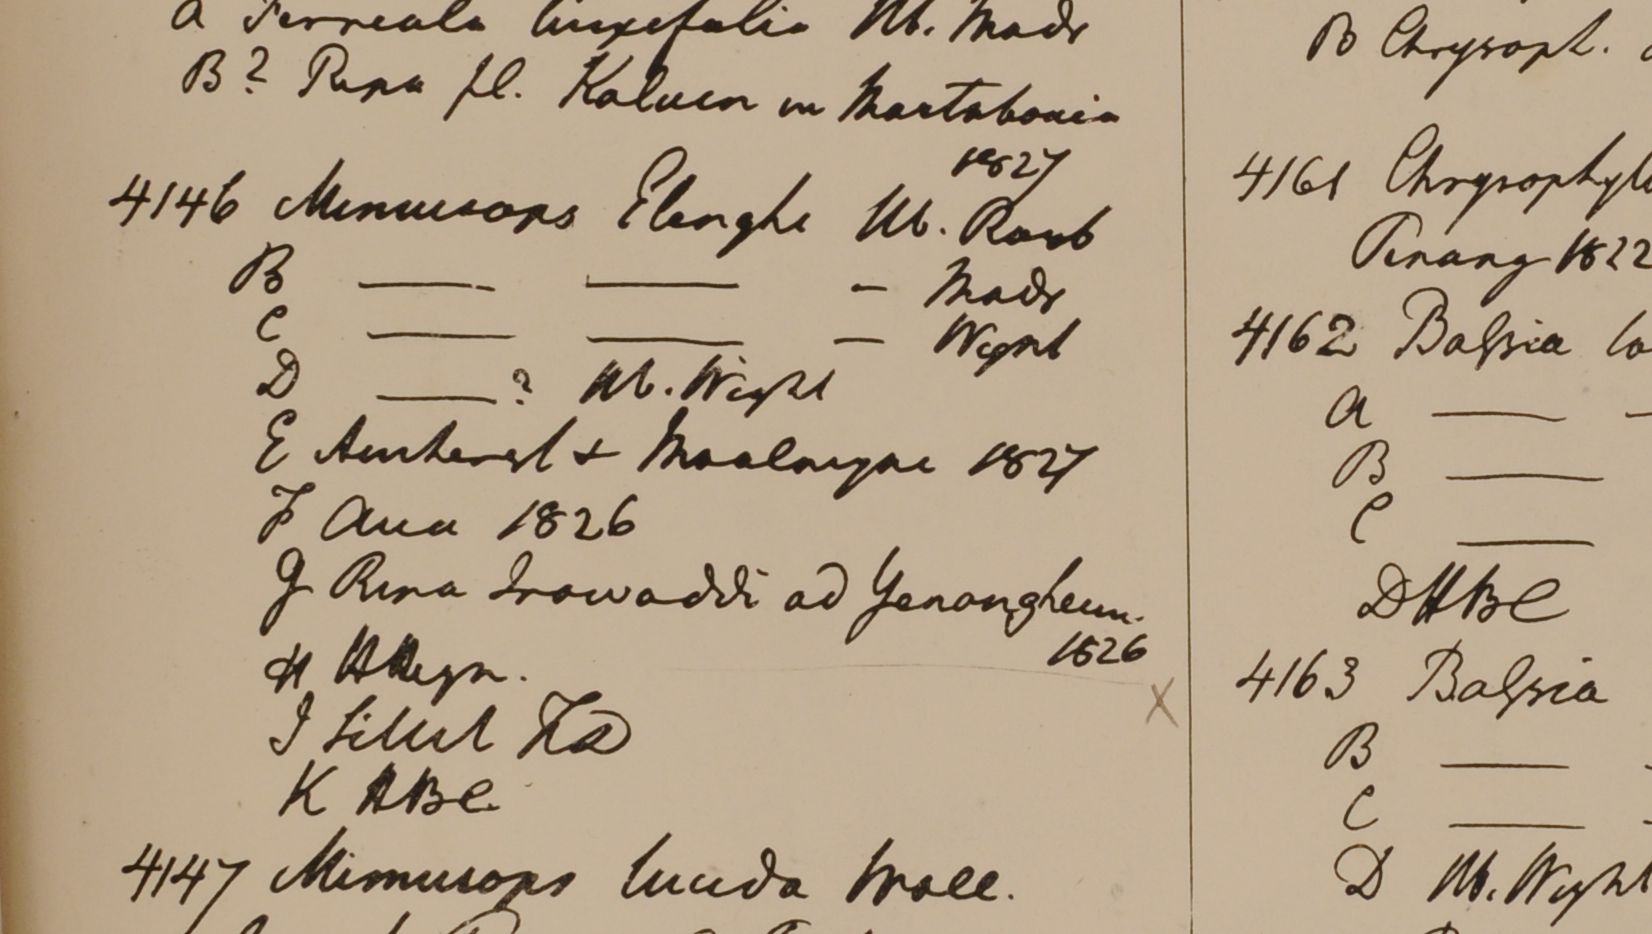 a Ferreola buxifolia Hb. Madr
B? Ripa fl. Kaluen in Martabania
1827
4146 Mimusops Elenghi Hb. Roxb
B — — — Madr
C — — — Wight
D — ? Hb. Wight
E Amherst + Moalmyne 1827
F Ava 1826
G Ripa Irawaddi ad Yenangheum.
1826
H HHeyn.
I Sillet FD
K HBC.
4147 Mimusops lucida Wall.
B Chrysoph.
4161 Chrysophyl
Pinang 1822
4162 Bassia lo
a —
B —
C —
D HBC
4163 Bassia
B —
C —
D Hb. Wight